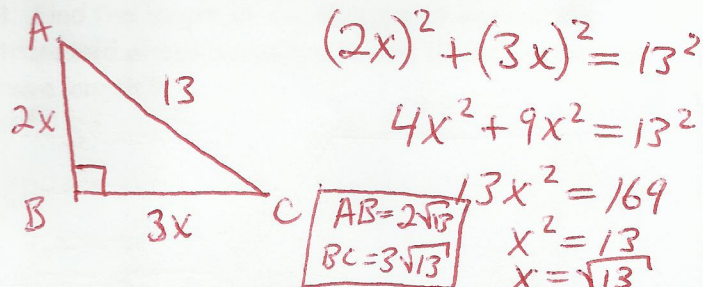 A
13
2x
B
3x
C
(2x)² + (3x)² = 13²
4x² + 9x² = 13²
13x² = 169
x² = 13
x = √13
AB = 2√13
BC = 3√13